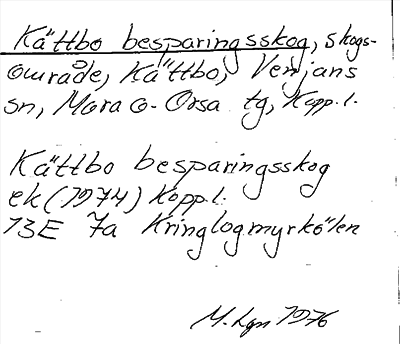 Kättbo besparingsskog, skogs-
område, Kättbo, Venjans
sn, Mora o. Orsa tg, Kopp. l.
Kättbo besparingsskog
ek (1974) Kopp. l.
13E 7a Kringlogmyrkölen
M. Lgn 1976